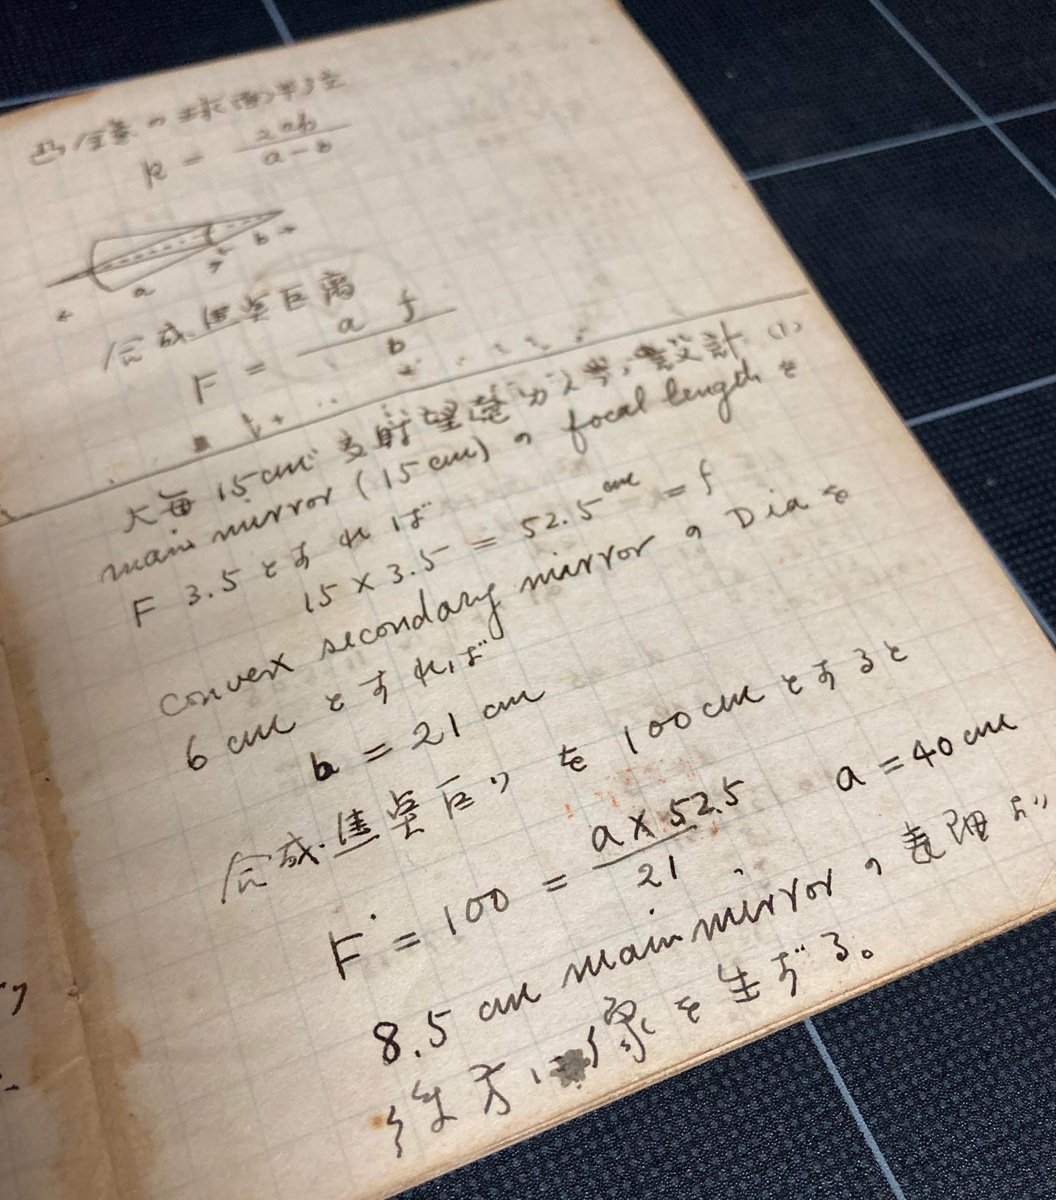 凸全景の球面半径
R = 2ab / a-b
a b
合成焦点距離
F = a f / b
大毎 15cm 反射望遠 設計 (1)
main mirror (15cm) の focal length を
F 3.5 とすれば
15 × 3.5 = 52.5 cm = f
convex secondary mirror の Dia を
6 cm とすれば
b = 21 cm
合成焦点距り を 100cm とすると
F = 100 = a × 52.5 / 21 a = 40 cm
8.5 cm main mirror の 表面
後方に像を生ずる。